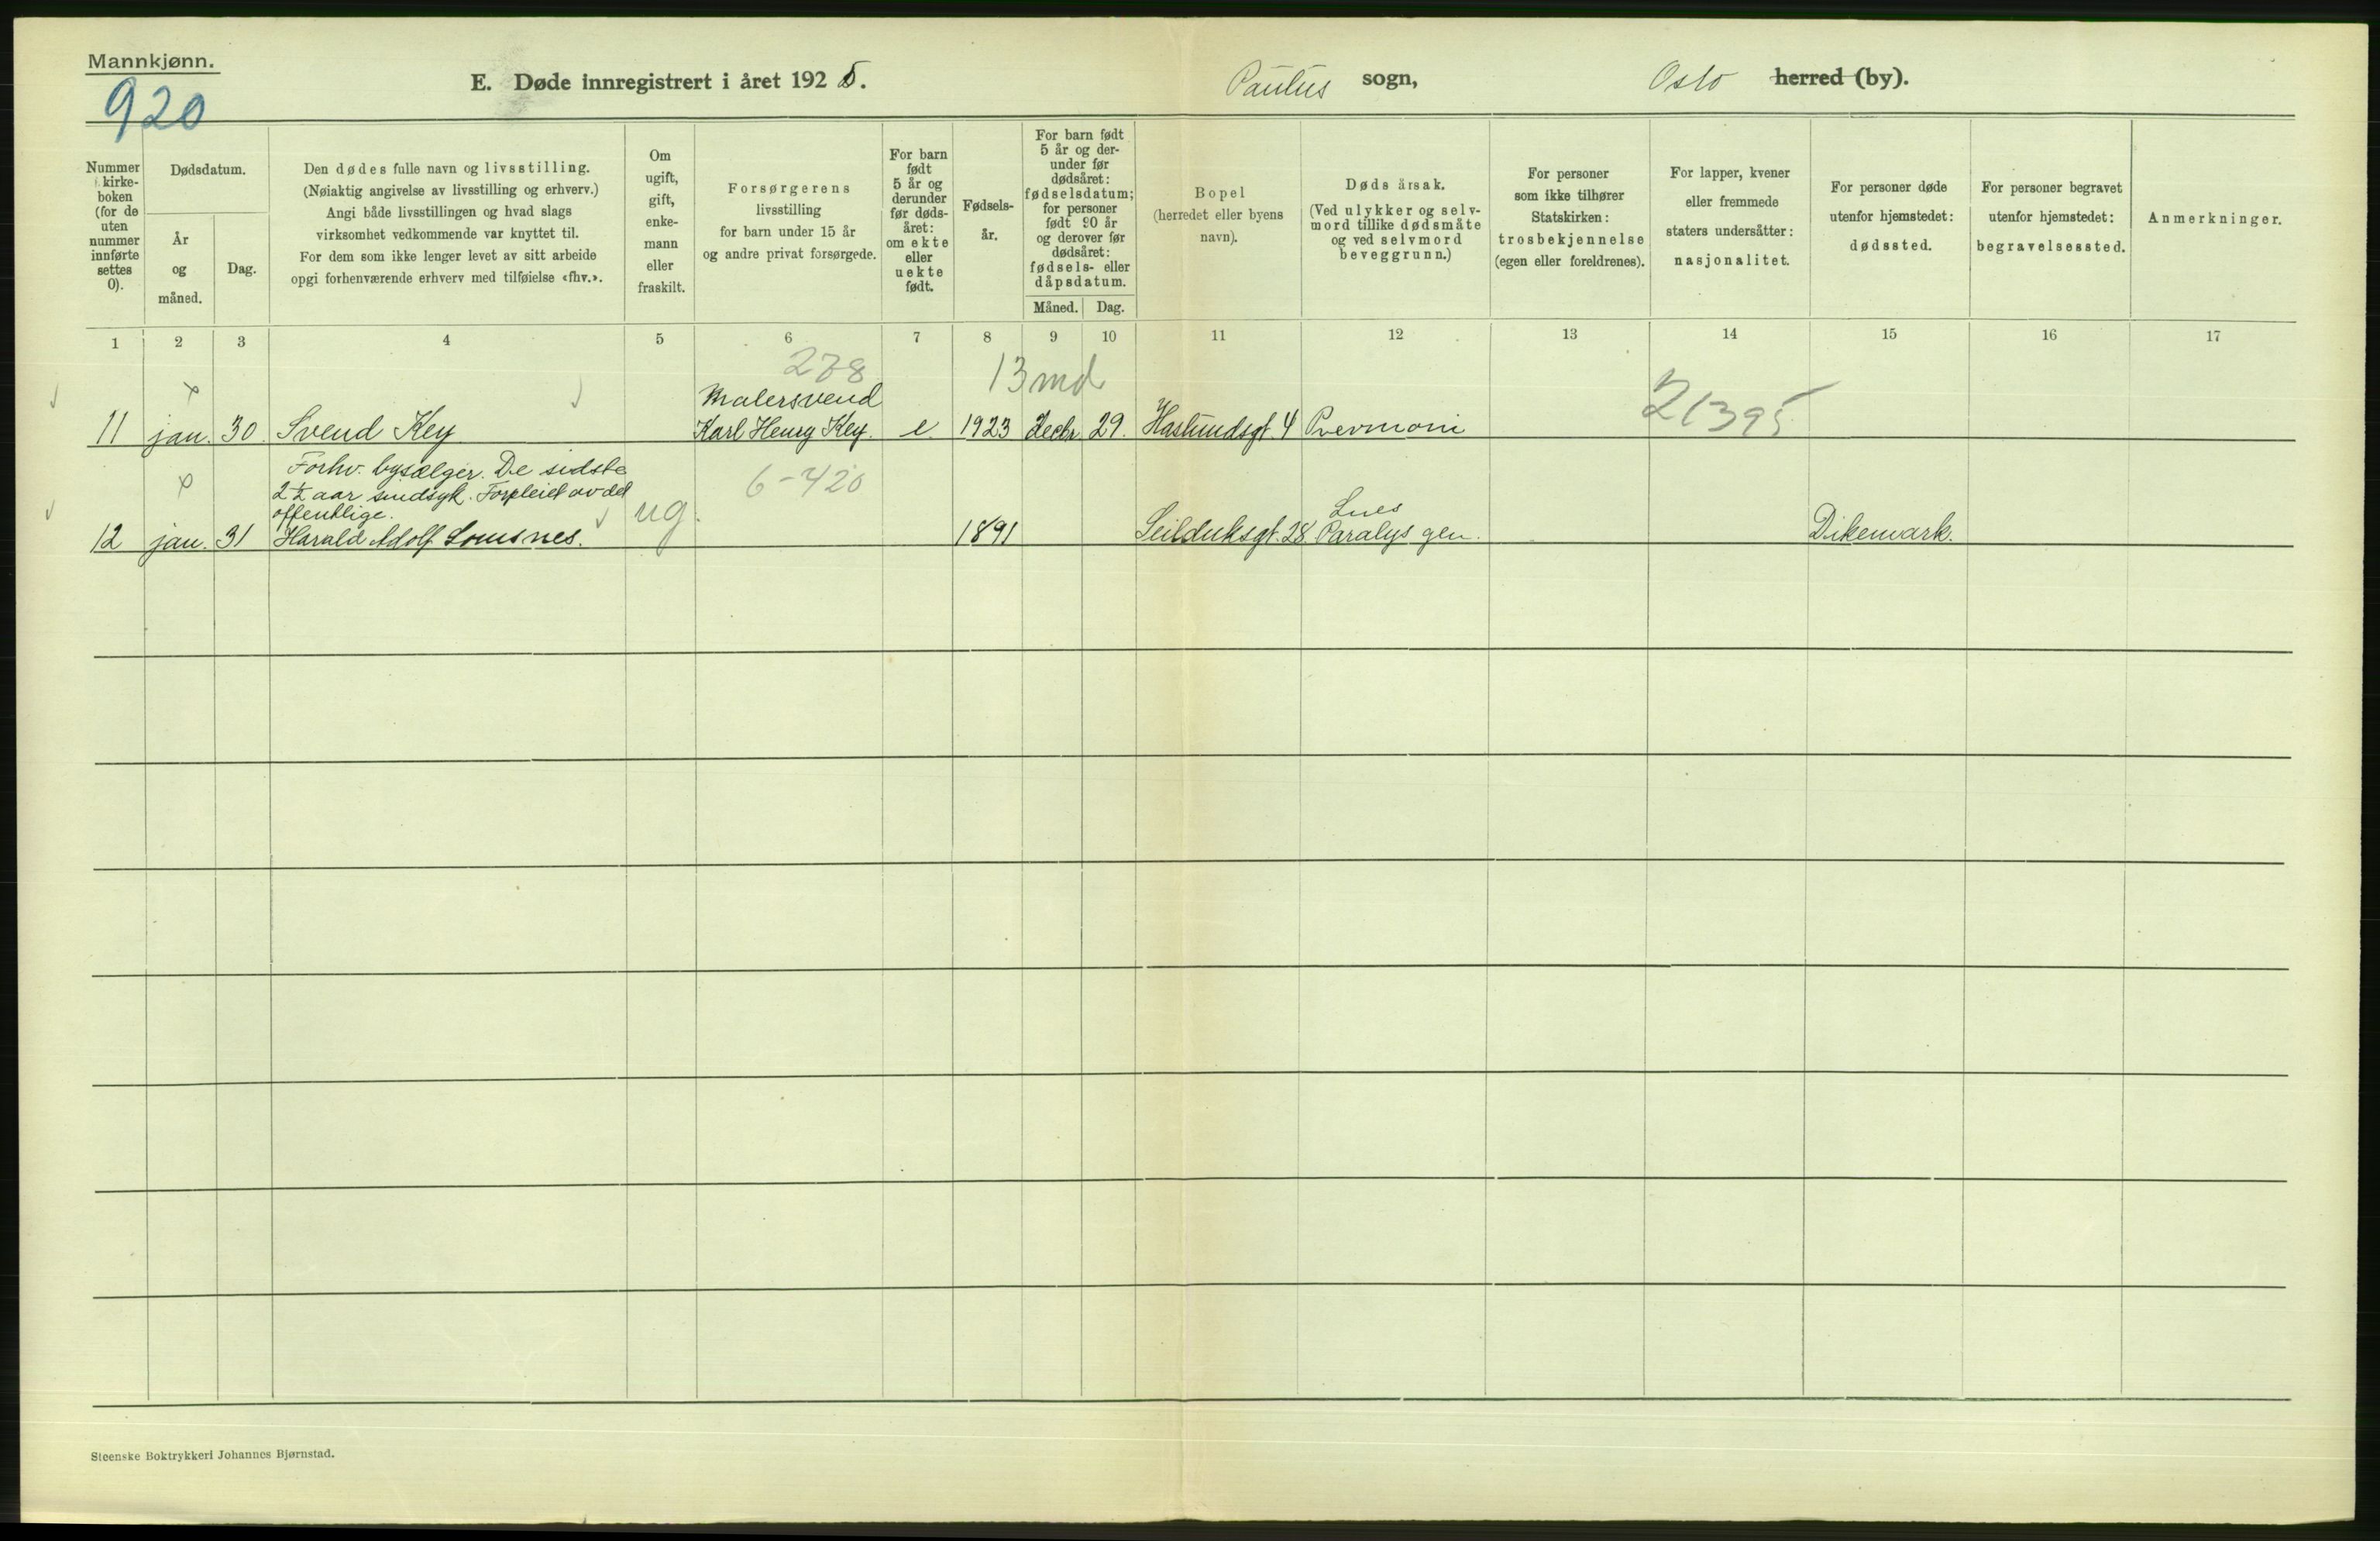 Mannkjønn.
920
E. Døde innregistrert i året 1925.
Paulus sogn,
Oslo herred (by).
Nummer i kirke-
boken
(for de
uten
nummer
innførte
settes
0).
Dødsdatum.
År
og
måned.
Dag.
Den dødes fulle navn og livsstilling.
(Nøiaktig angivelse av livsstilling og erhverv.)
Angi både livsstillingen og hvad slags
virksomhet vedkommende var knyttet til.
For dem som ikke lenger levet av sitt arbeide
opgi forhenværende erhverv med tilføielse «fhv.».
Om
ugift,
gift,
enke-
mann
eller
fraskilt.
Forsørgerens
livsstilling
for barn under 15 år
og andre privat forsørgede.
For barn
født
5 år og
derunder
før døds-
året:
om ekte
eller
uekte
født.
Fødsels-
år.
For barn født
5 år og der-
under før
dødsåret:
fødselsdatum;
for personer
født 90 år
og derover før
dødsåret:
fødsels- eller
dåpsdatum.
Måned. Dag.
Bopel
(herredet eller byens
navn).
Dødsårsak.
(Ved ulykker og selv-
mord tillike dødsmåte
og ved selvmord
beveggrunn.)
For personer
som ikke tilhører
Statskirken:
trosbekjennelse
(egen eller foreldrenes).
For lapper, kvener
eller fremmede
staters undersåtter:
nasjonalitet.
For personer døde
utenfor hjemstedet:
dødssted.
For personer begravet
utenfor hjemstedet:
begravelsessted.
Anmerkninger.
1 2 3 4 5 6 7 8 9 10 11 12 13 14 15 16 17
278
13 md
21395
Malersvend
11 jan. 30. Svend Key Karl Henry Key. e. 1923 Decbr. 29. Haslundsgt. 4 Pnevmoni
Forhv. bysælger. De sidste
2½ aar sindsyk. Forpleiet av det
offentlige.
6-420
Lues
12 jan. 31 Harald Adolf Lomsnes. ug. 1891 Seilduksgt. 28. Paralys gen. Dikemark.
Steenske Boktrykkeri Johannes Bjørnstad.